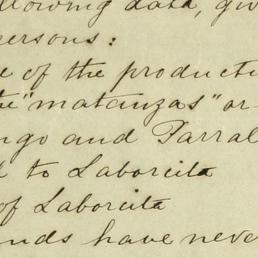 llowing data, giv
persons:
e of the producti
the "matanzas" or
ngo and Parral
l to Laborcita
of Laborcita
nds have never